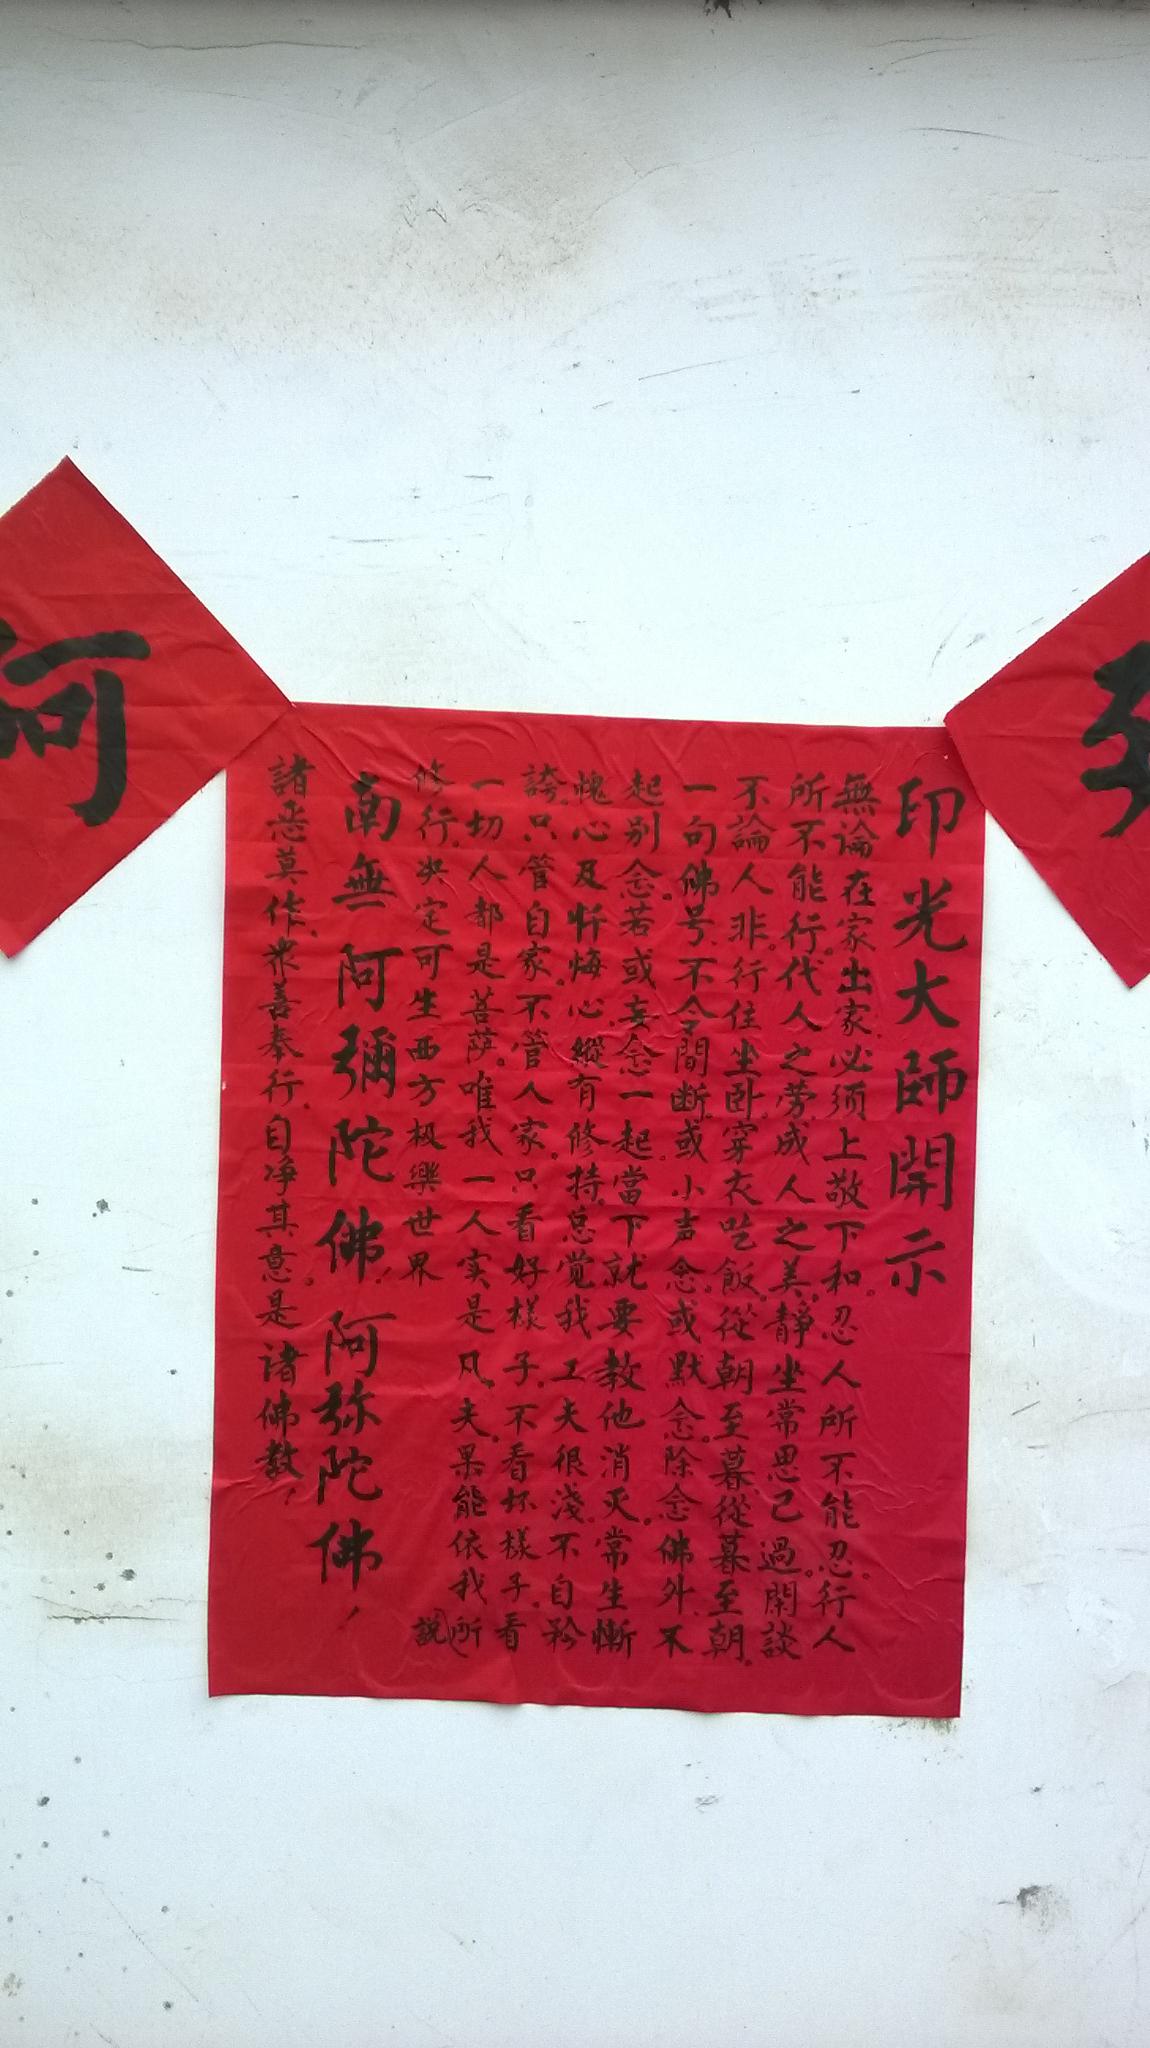 印光大師開示
無論在家出家.必须上敬下和.忍人所不能忍.行人
所不能行.代人之劳.成人之美.靜坐常思己過.閑談
不論人非.行住坐卧.穿衣吃飯.從朝至暮.從暮至朝.
一句佛号.不令間断.或小声念.或默念.除念佛外.不
起别念.若或妄念一起.當下就要教他消灭.常生慚
愧心及忏悔心.縱有修持.总觉我工夫很淺.不自矜
誇.只管自家.不管人家.只看好樣子.不看坏樣子.看
一切人都是菩萨.唯我一人实是凡夫.果能依我所(説)
修行.决定可生西方极樂世界
南無阿彌陀佛!阿弥陀佛!
諸恶莫作.衆善奉行.自净其意.是诸佛教!
阿